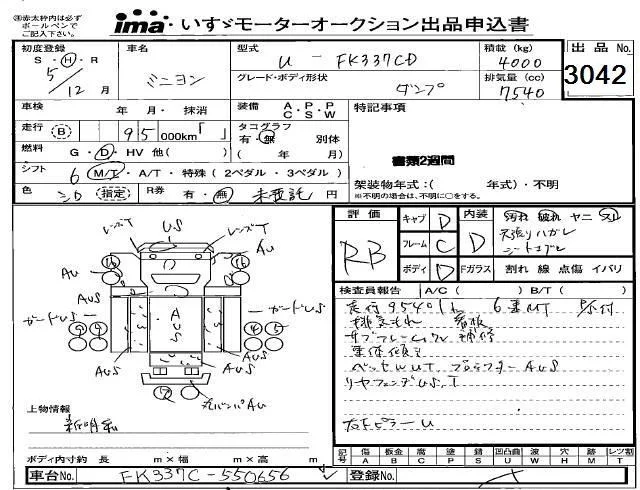 ※赤太枠内は必ず
ボールペンで
ご記入下さい。
ima・いすゞモーターオークション出品申込書
初度登録
S・H・R
5/12月
車名
ミニヨン
型式
U-FK337CD
グレード・ボディ形状
ダンプ
積載(kg)
4000
排気量(cc)
7540
出品 No.
3042
車検 年 月・抹消
装備 A・P・P
C・S・W
特記事項
走行 B 95 000km「 」
タコグラフ
有・無 別体
( 年 月)
燃料 G・D・HV 他( )
書類2週間
シフト 6 M/T・A/T・特殊(2ペダル・3ペダル)
架装物年式:( 年式)・不明
※不明の場合は、不明に○をする。
色 シロ 指定 R券 有・無 未預託 円
評価
RB
キャブ D
フレーム C
ボディ D
内装
D
汚れ 破れ ヤニ スレ
天張りハガレ
Fガラス 割れ 線 点傷 イバリ
検査員報告 A/C( ) B/T( )
走行95401k 6速MT
排気もれ 看板
サブフレーム 補修
車体傾き
ベッセルUT プロテクターAUS
リヤフェンダUS.T
左Fピラー U
レンズT
US
レンズT
AU
AU
AUS
AUS
ガードUS
ガードUS
AUS
AUS
AUS
AU
上物情報
新明和
ボディ内寸約 長 m×幅 m×高 m
記号 傷 A 板金 B 腐 C 塗 P 錆 S 凹凸曲 U 波 W 穴 H 跡 M レンズ割 T
車台No. FK337C-550656
登録No.